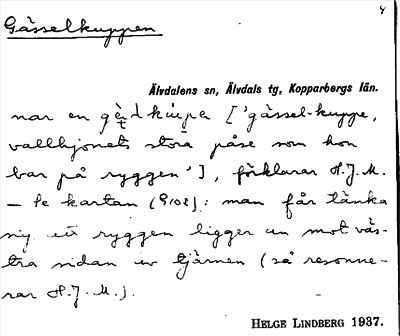 Gässelkuppen
4
Älvdalens sn, Älvdals tg, Kopparbergs län.
nar en ['gässel-kuppe,
vallhjonets stora påse som hon
bar på ryggen'], förklarar H.J.M.
— Se kartan (9108): man får tänka
sig att ryggen ligger mot väs-
tra sidan av tjärnen (så resonne-
rar H.J.M.).
HELGE LINDBERG 1937.